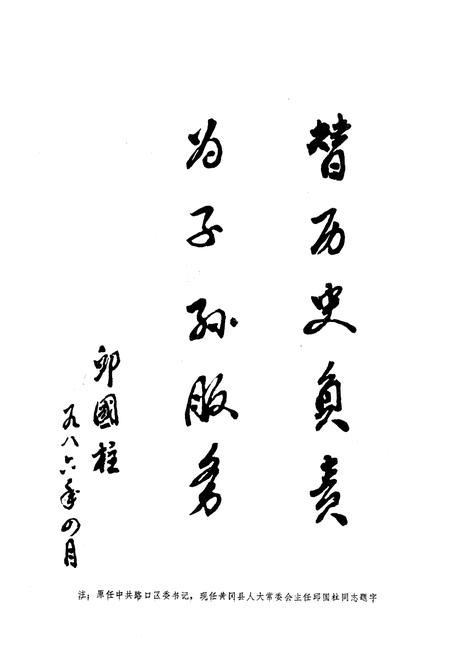 替历史负责
为子孙服务
邱國柱
一九八六年四月
注：原任中共路口区委书记，现任黄冈县人大常委会主任邱国柱同志题字